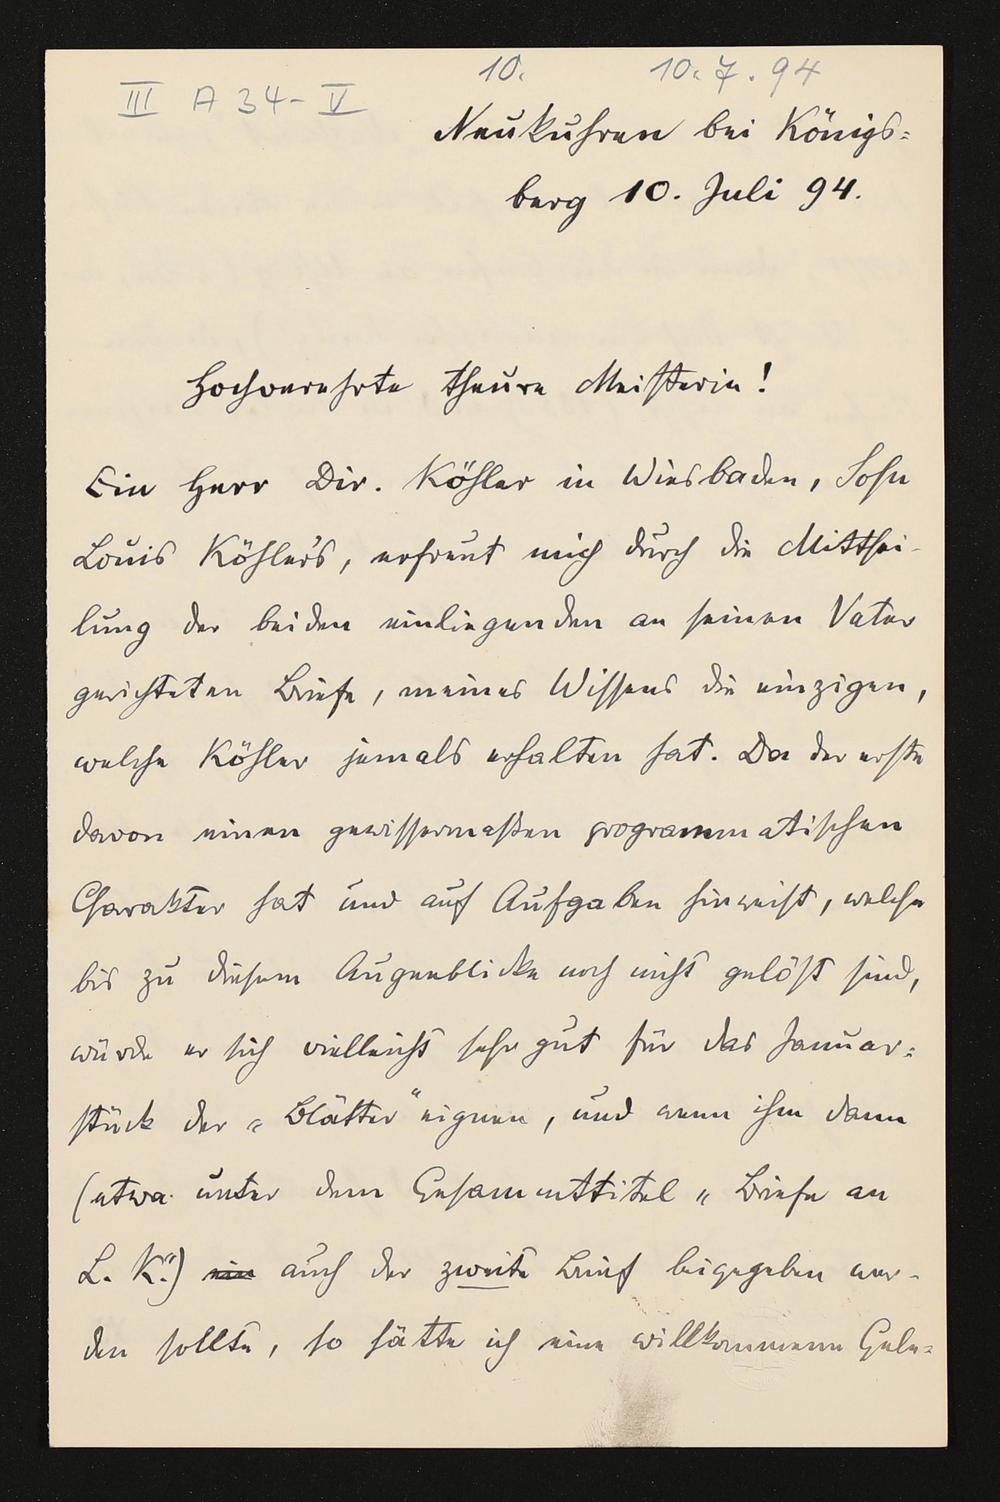 III A 34-V
10.
10.7.94
Neukuhren bei Königs-
berg 10. Juli 94.
Hochverehrte theure Meisterin!
Ein Herr Dir. Köhler in Wiesbaden, Sohn
Louis Köhler's, erfreut mich durch die Mitthei-
lung der beiden einliegenden an seinen Vater
gerichteten Briefe, meines Wissens die einzigen,
welche Köhler jemals erhalten hat. Da der erste
davon einen gewissermaßen programmatischen
Charakter hat und auf Aufgaben hinweist, welche
bis zu diesem Augenblicke noch nicht gelöst sind,
würde er sich vielleicht sehr gut für das Januar-
stück der „Blätter" eignen, und wenn ihm dann
(etwa unter dem Gesammttitel „Briefe an
L. K.") ein auch der zweite Brief beigegeben wer-
den sollte, so hätte ich eine willkommene Gele-